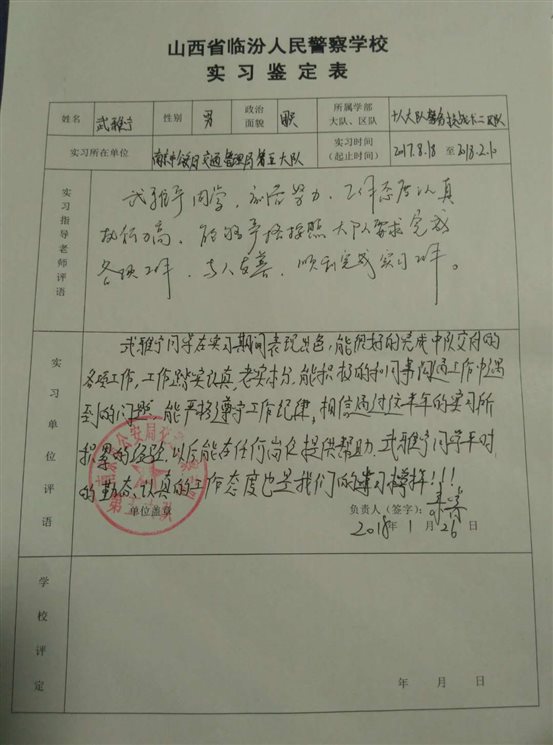 山西省临汾人民警察学校
实习鉴定表
姓名 武雅宁 性别 男 政治面貌 团员 所属学部大队、区队 二区队
实习所在单位 公安局交通管理局第五大队 实习时间（起止时间） 2017.8.18 至 2018.2.10
实习指导老师评语
武雅宁同学，刻苦努力，工作态度认真
执行力高，能够严格按照大队要求完成
各项工作，与人友善，顺利完成实习工作。
实习单位评语
武雅宁同学在实习期间表现出色，能很好的完成中队交付的
各项工作，工作踏实认真，老实本分，能积极的和同事沟通工作中遇
到的问题，能严格遵守工作纪律，相信通过这半年的实习所
积累的经验，以后能在任何岗位提供帮助。武雅宁同学平时
的勤态、认真的工作态度也是我们的学习榜样！！！
单位盖章 负责人（签字）：
2018年1月26日
学校评定
年 月 日